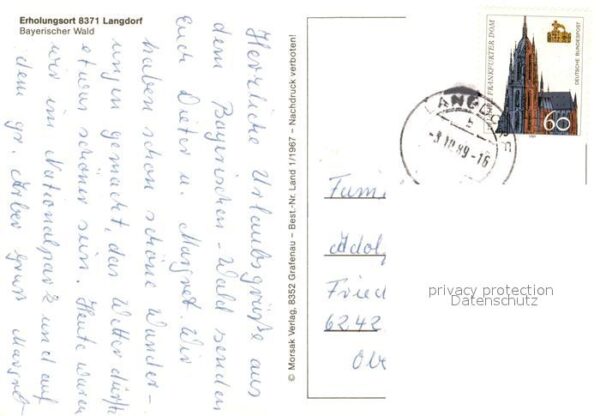 Erholungsort 8371 Langdorf
Bayerischer Wald
Herzliche Urlaubsgrüße aus
dem Bayerischen-Wald senden
Euch Dieter u. Margret. Wir
haben schon schöne Wander-
ungen gemacht, das Wetter dürfte
etwas schöner sein. Heute waren
wir im Nationalpark und auf
dem gr. Arber Gruß Margret
© Morsak Verlag, 8352 Grafenau – Best.-Nr. Land 1/1967 – Nachdruck verboten!
FRANKFURTER DOM
DEUTSCHE BUNDESPOST
60
LANGDORF
b
-3.10.89-16
Fami
Adolf
Fried
6242
Obe
privacy protection
Datenschutz